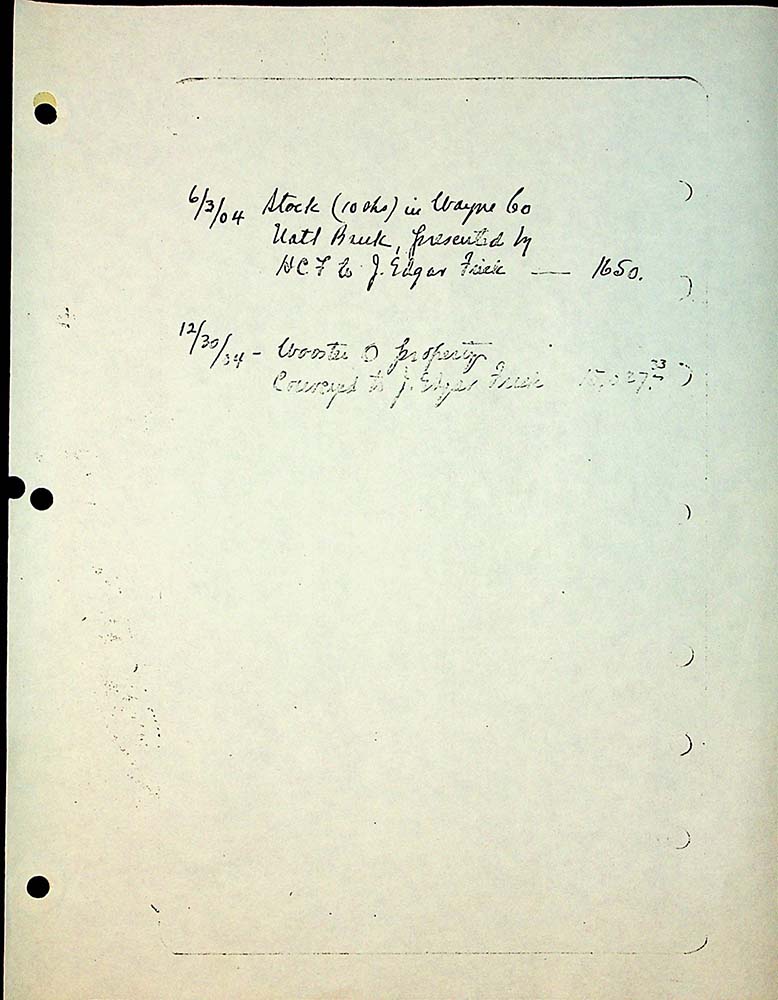 6/3/04 Stock (10 shs) in Wayne Co
Natl Bank, presented by
HCF to J. Edgar Frick — 1650.
12/30/34 - Wooster O property
Conveyed to J. Edgar Frick